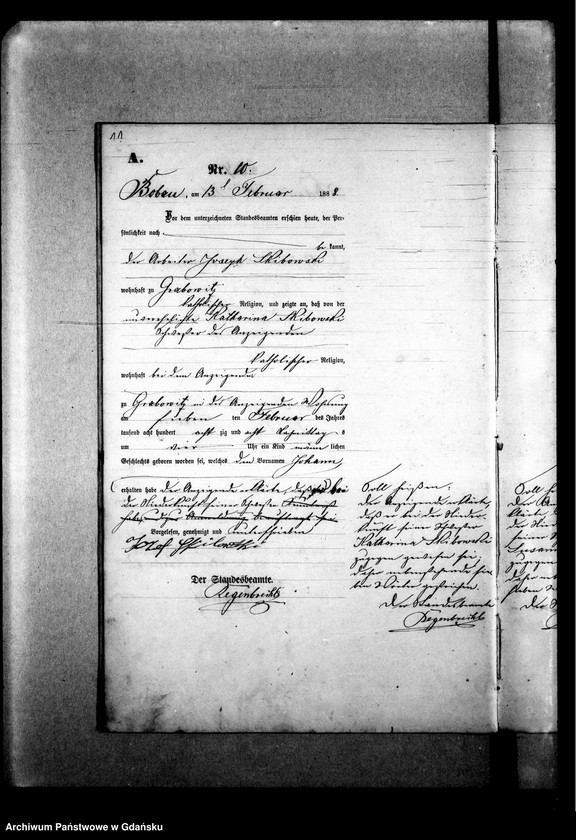 11
A.
Nr. 10.
Bobau, am 13t Februar 1888.
Vor dem unterzeichneten Standesbeamten erschien heute, der Per-
sönlichkeit nach
be kannt,
der Arbeiter Joseph Skibowski
wohnhaft zu Grabowitz
katholischer Religion, und zeigte an, daß von der
unverehelichte Katharina Skibowski
Schwester des Anzeigenden
katholischer Religion,
wohnhaft bei dem Anzeigenden
zu Grabowitz in des Anzeigenden Wohnung
am sieben ten Februar des Jahres
tausend acht hundert acht zig und acht Nachmittags
um vier Uhr ein Kind männ lichen
Geschlechts geboren worden sei, welches den Vornamen Johann
erhalten habe der Anzeigende erklärte, daß er bei
der Niederkunft seiner Schwester
Vorgelesen, genehmigt und unterschrieben
Jozef
Der Standesbeamte.
Regenbrecht
Soll heißen:
Der Anzeigende erklärte,
daß er bei der Nieder-
kunft seiner Schwester
Katharina Skibowski
zugegen gewesen sei,
Der Standesbeamte
Regenbrecht
Soll
Archiwum Państwowe w Gdańsku